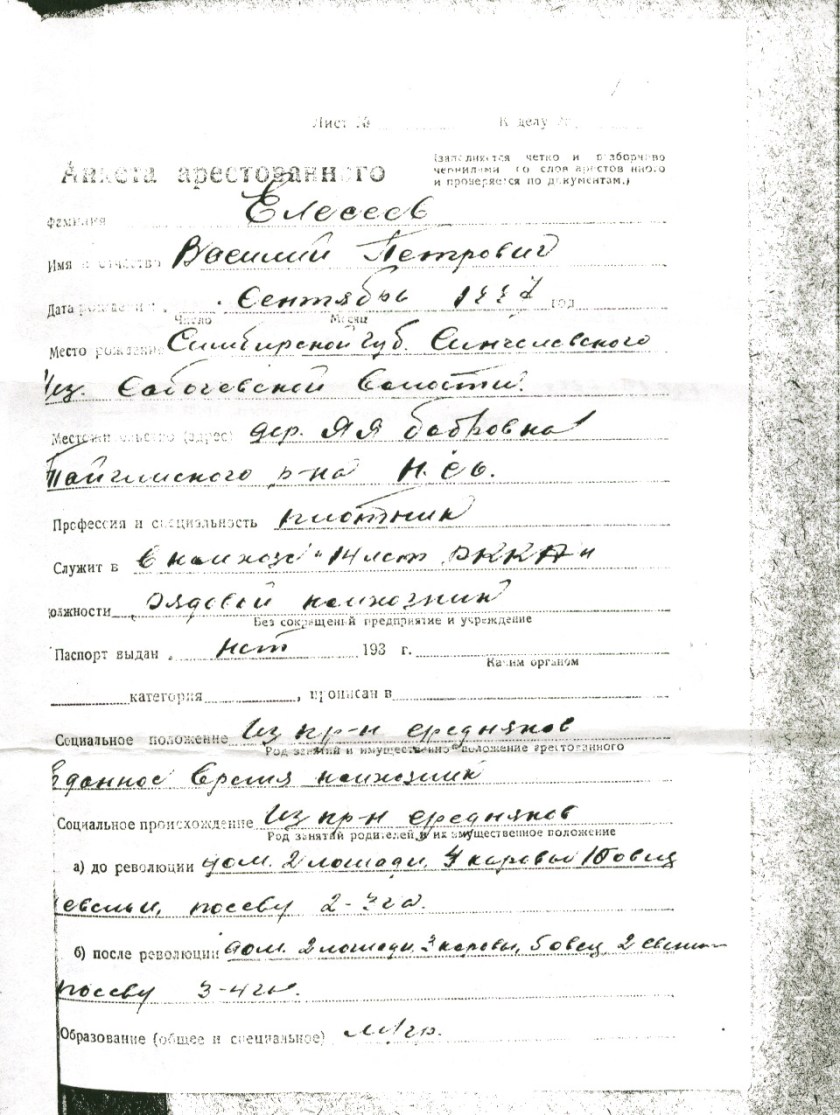 Лист № К делу №
Анкета арестованного
(заполняется четко и разборчиво
чернилами со слов арестованного
и проверяется по документам.)
фамилия Елесеев
Имя и отчество Василий Петрович
Дата рождения Сентябрь год
Число Месяц
Место рождения Симбирской губ.
уез. волости.
Местожительство (адрес) дер. Яя бобровка
р-на Н. Сиб.
Профессия и специальность плотник
Служит в в колхозе 14 лет РККА и
должности рядовой колхозник
Без сокращений предприятие и учреждение
Паспорт выдан нет 193 г.
Каким органом
категория , прописан в
Социальное положение Из кр-н середняков
Род занятий и имущественное положение арестованного
в данное время колхозник
Социальное происхождение Из кр-н середняков
Род занятий родителей и их имущественное положение
а) до революции дом. 2 лошади, 4 каровы 10 овец
свеньи, посеву 2-3 га.
б) после революции дом. 2 лошади 3 каровы, 5 овец 2 свеньи
посеву 3-4 га.
Образование (общее и специальное) м/гр.